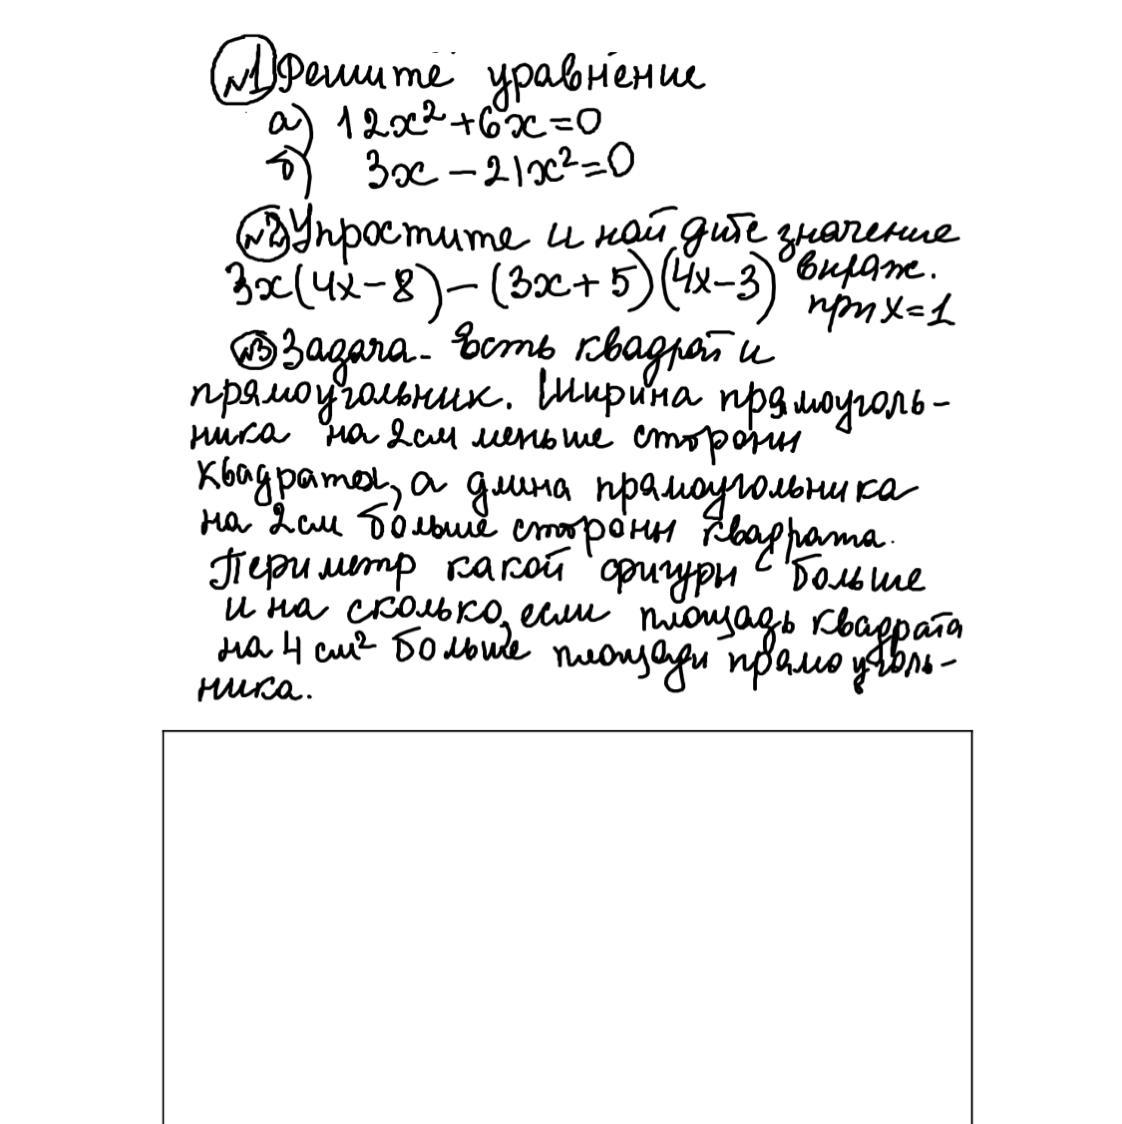 №1 Решите уравнение
а) 12x²+6x=0
б) 3x-21x²=0
№2 Упростите и найдите значение
3x(4x-8)-(3x+5)(4x-3) выраж.
при x=1
№3 Задача. Есть квадрат и
прямоугольник. Ширина прямоуголь-
ника на 2см меньше стороны
квадрата, а длина прямоугольника
на 2см больше стороны квадрата.
Периметр какой фигуры больше
и на сколько, если площадь квадрата
на 4 см² больше площади прямоуголь-
ника.